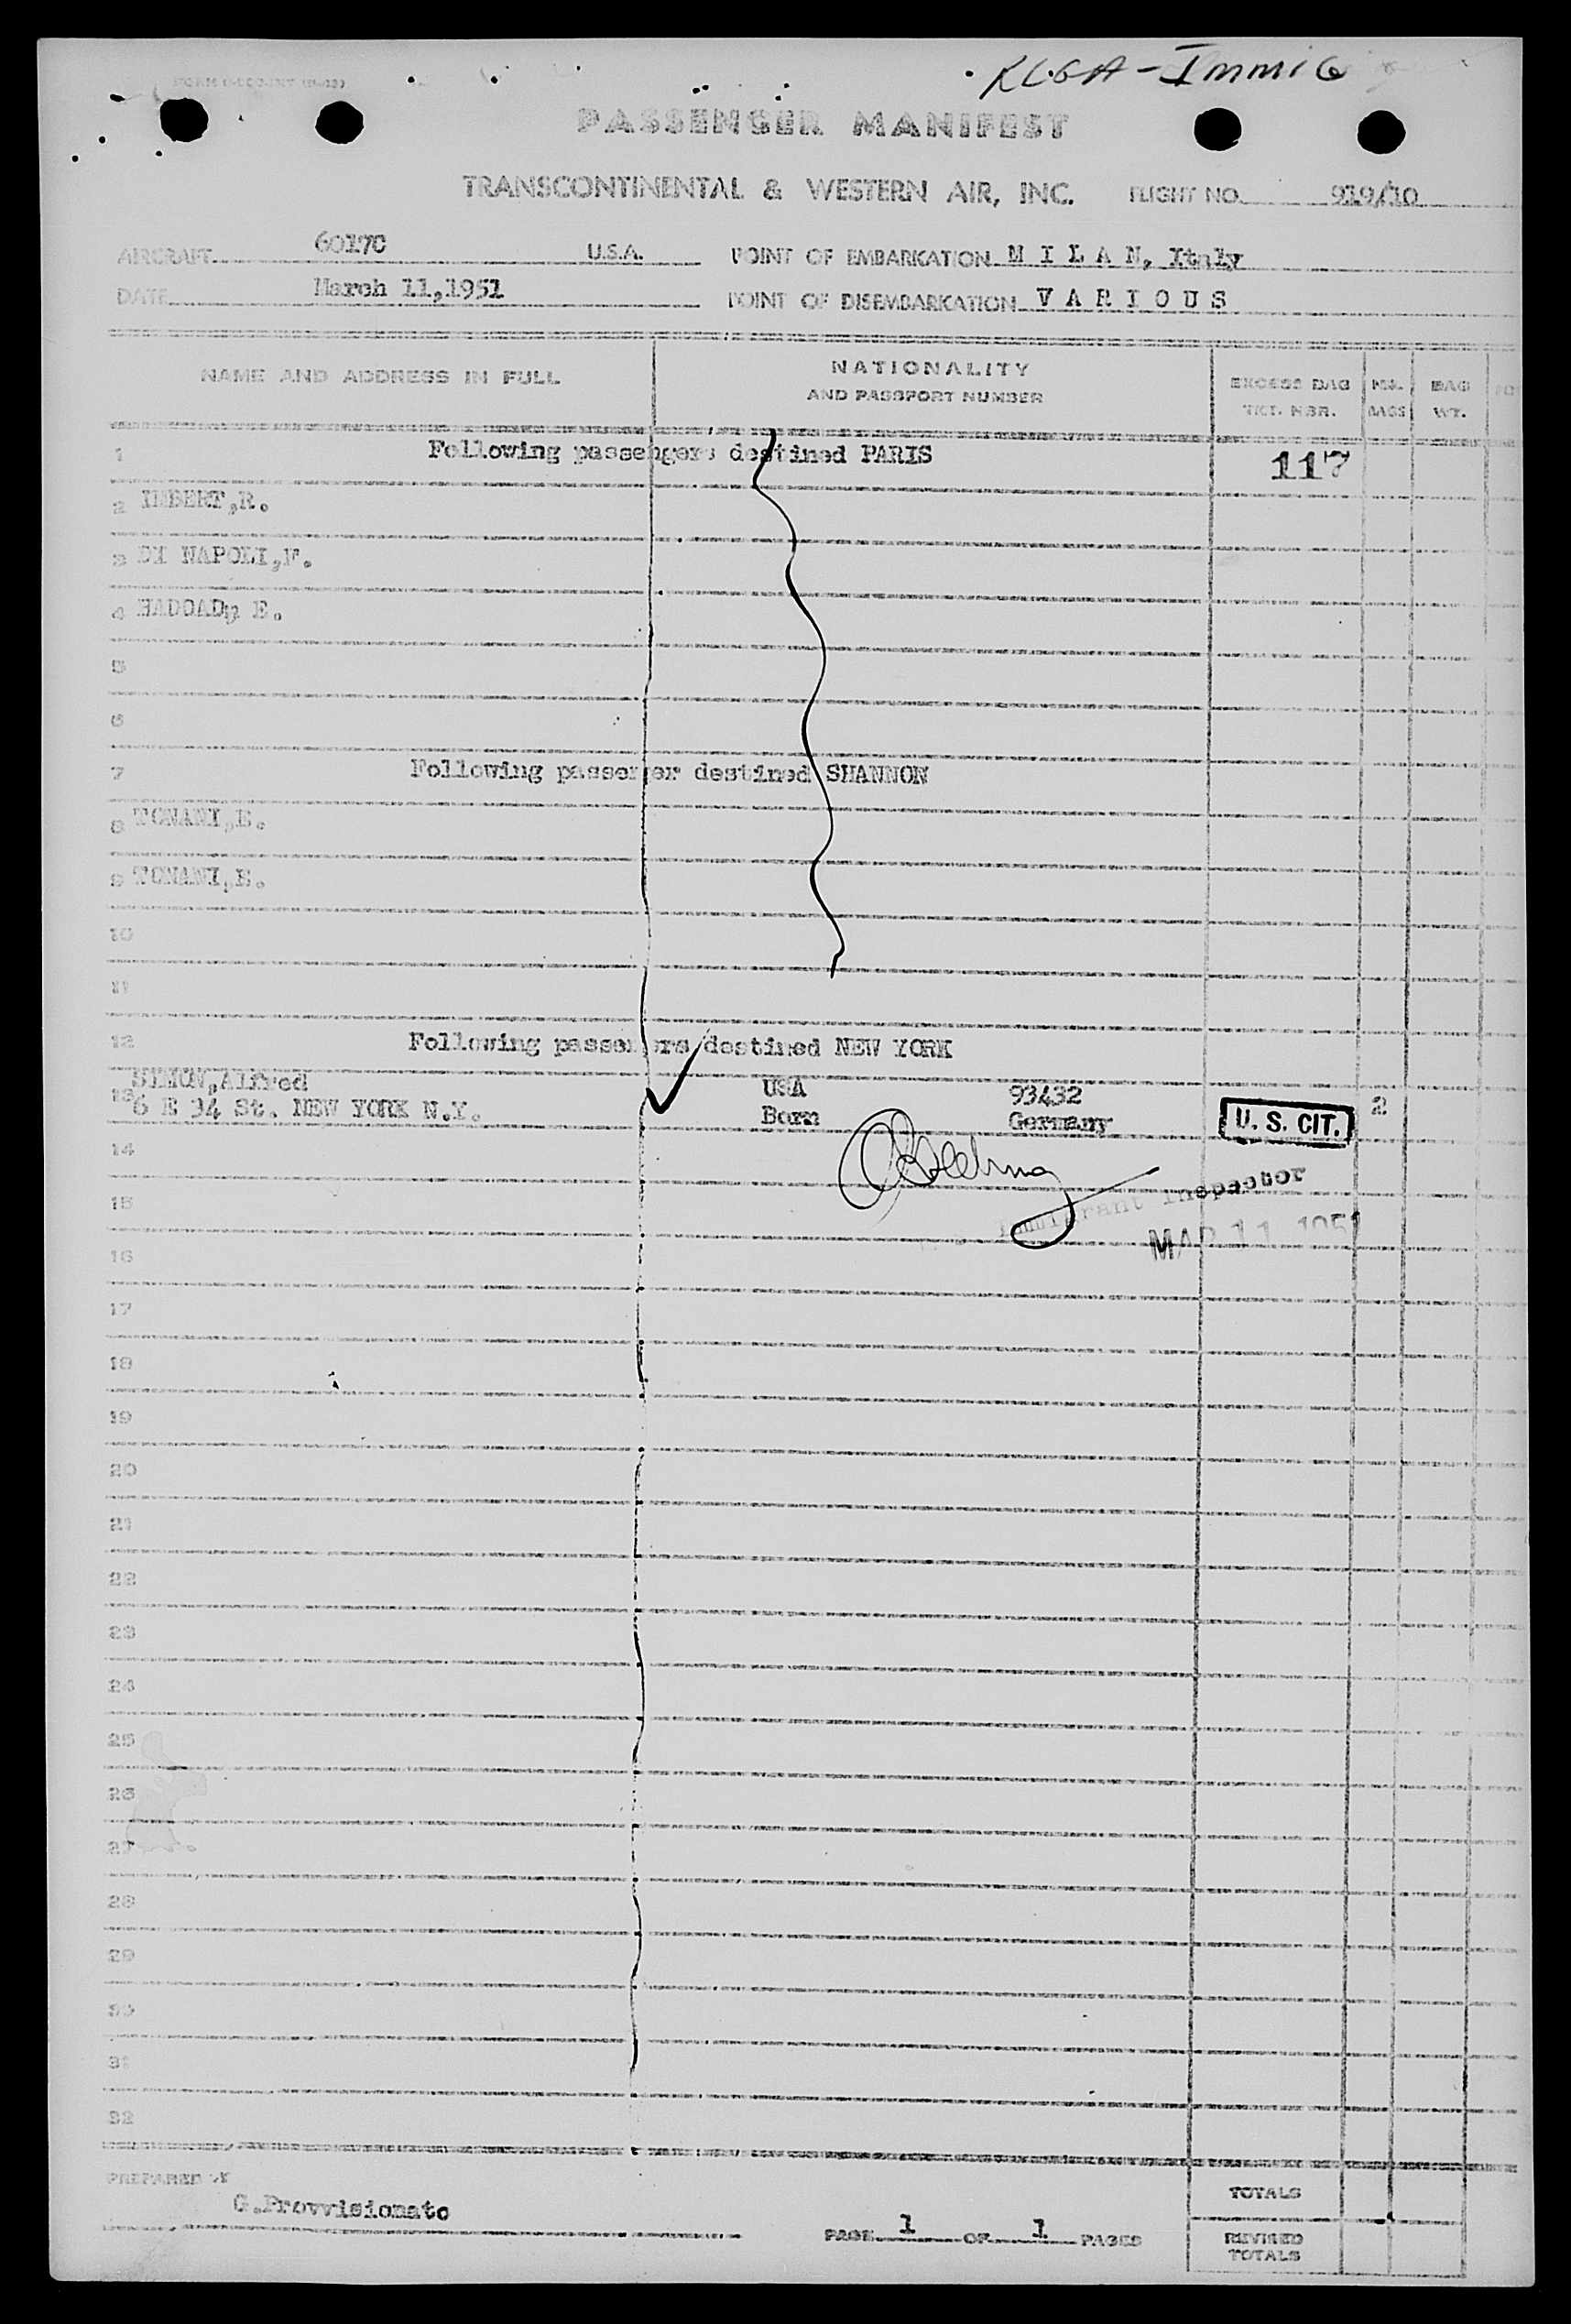 KLGA - Immig
PASSENGER MANIFEST
TRANSCONTINENTAL & WESTERN AIR, INC. FLIGHT NO. 919/10
AIRCRAFT 6017C U.S.A. POINT OF EMBARKATION M I L A N, Italy
DATE March 11,1951 POINT OF DISEMBARKATION V A R I O U S
NAME AND ADDRESS IN FULL
NATIONALITY
AND PASSPORT NUMBER
EXCESS BAG
TKT. NBR.
BAGS
BAG
WT.
1 Following passengers destined PARIS 117
2 IMBERT,R.
3 DI NAPOLI,F.
4 HADDAD, E.
5
6
7 Following passenger destined SHANNON
8 TONANI,E.
9 TONANI,E.
10
11
12 Following passengers destined NEW YORK
SIMON,Alfred USA 93432
13 6 E 94 St. NEW YORK N.Y. Born Germany U. S. CIT. 2
14
15 Immigrant Inspector
MAR 11 1951
16
17
18
19
20
21
22
23
24
25
26
27
28
29
30
31
32
PREPARED BY
G.Provvisionato
PAGE 1 OF 1 PAGES
TOTALS
REVISED
TOTALS